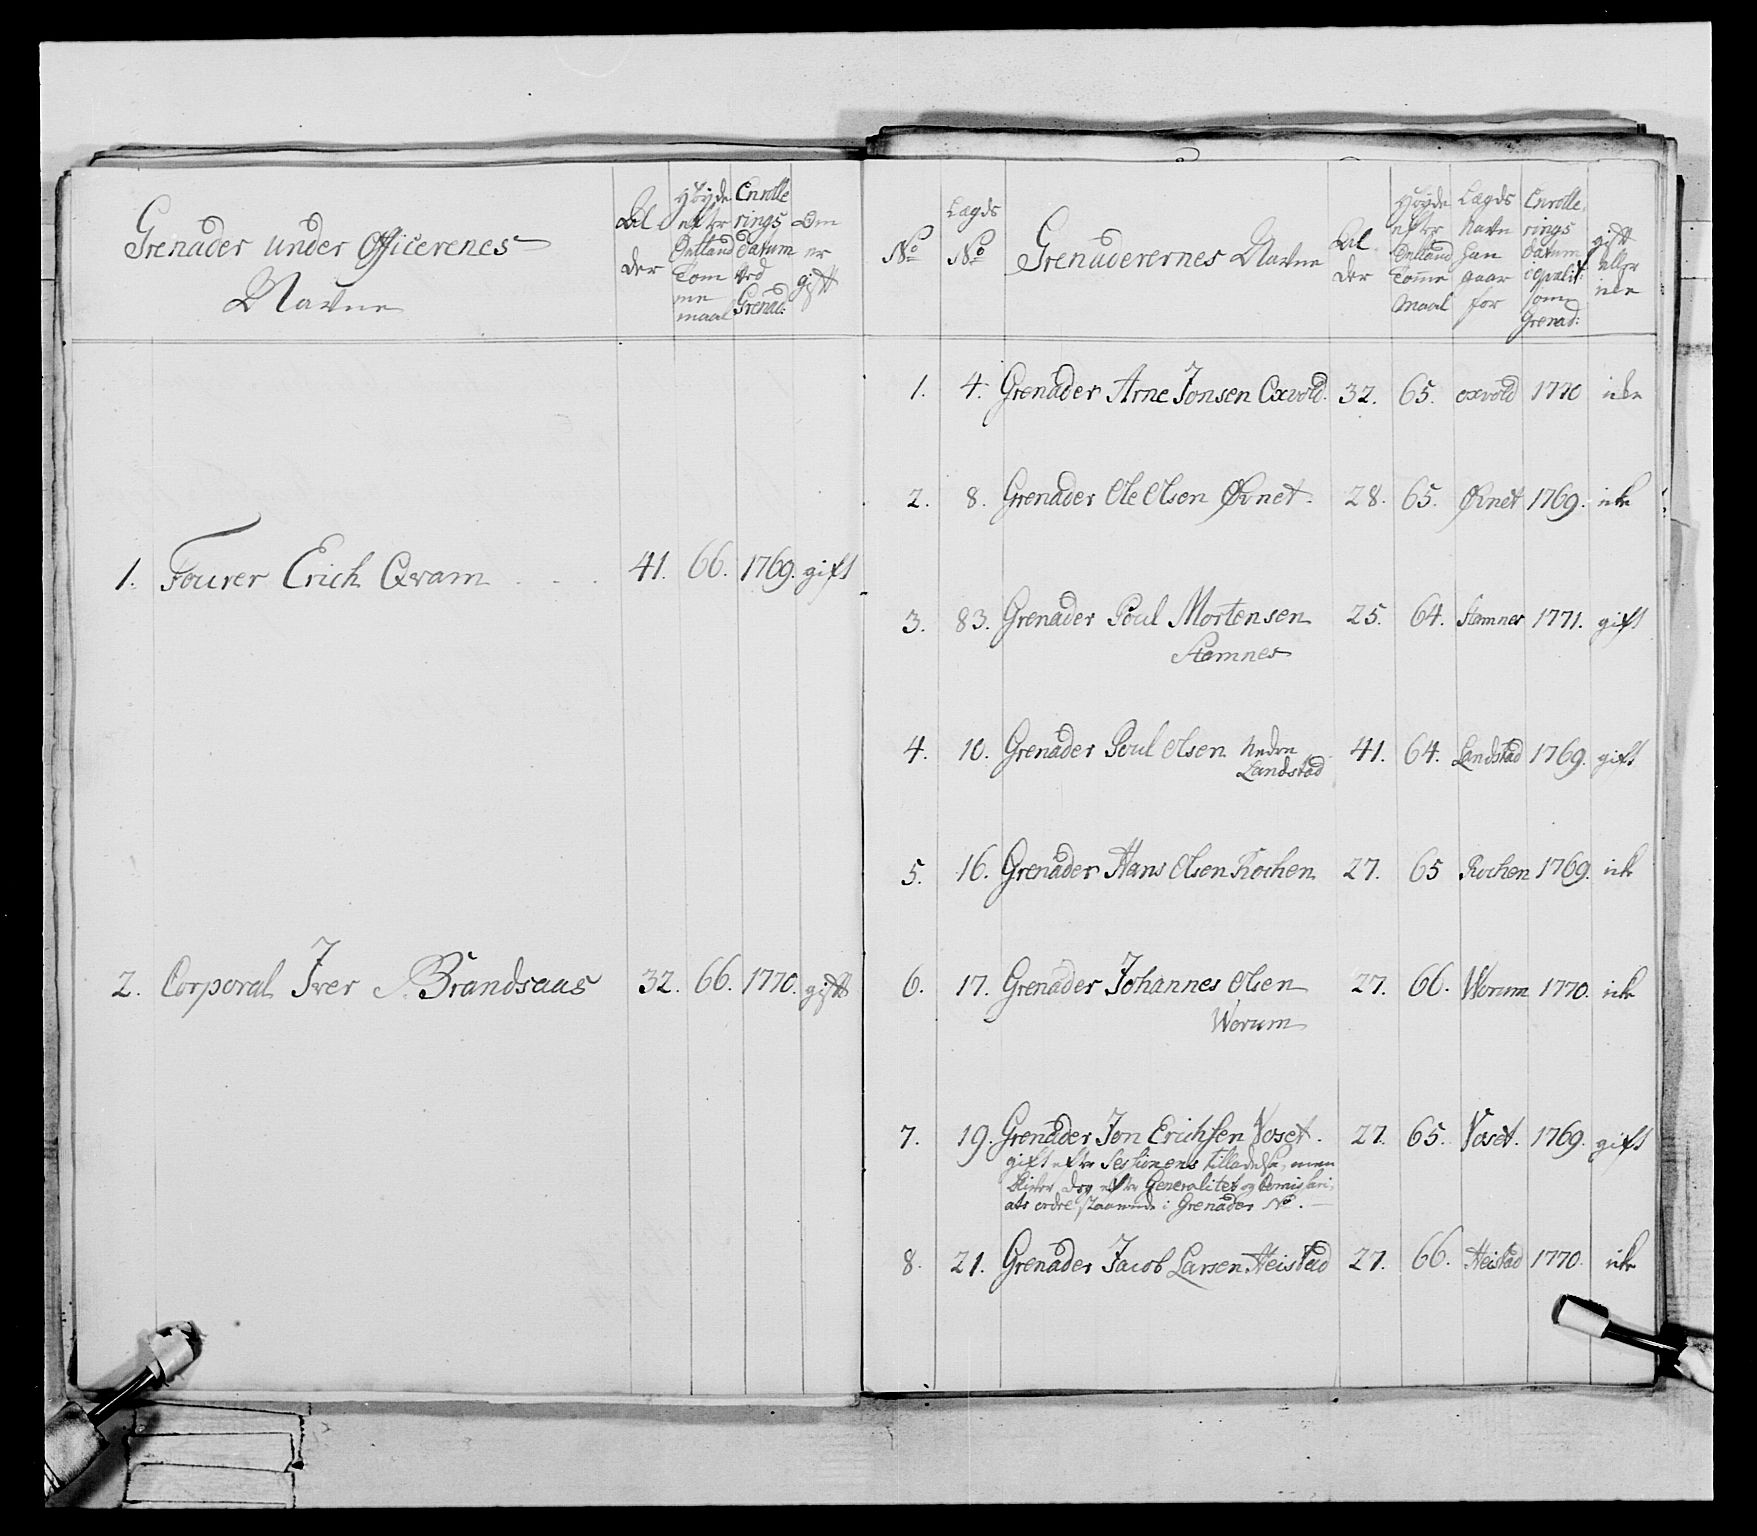 Grenader under Officerenes
Navne
Al
der
Høyde
efter
Qvtland
Tom
me
maal
Enrolle
rings
Datum
ved
Grenad:
Om
er
gift
1. Fourer Erich Qvam 41. 66. 1769. gift
2. Corporal Iver Brandsaas 32. 66. 1770. gift
No
Lægds
No
Grenaderernes Navne
Al
der
Høyde
efter
Tomme
Maal
Lægds
Navn
han
staar
for
Enrolle
rings
Datum
som
Grenad:
gift
eller
icke
1. 4. Grenader Arne Jonsen Oxvold. 32. 65. oxvold 1770 icke
2. 8. Grenader Ole Olsen Øvnet. 28. 65. Øvnet 1769. icke
3. 83. Grenader Poul Mortensen 25. 64. Stamnes 1771. gift
Stamnes
4. 10. Grenader Poul Olsen Nedre 41. 64. Landstad 1769. gift
Landstad
5. 16. Grenader Hans Olsen Rochen 27. 65 Rochen 1769. icke
6. 17. Grenader Johannes Olsen 27. 66. Worum 1770. icke
Worum
7. 19. Grenader Jon Erichsen Voset. 27. 65. Voset. 1769. gift
gift efter Sessionens tilladelse, men
bliver dog efter Generalitet og Comissari
ats ordre staaende i Grenader No.
8. 21. Grenader Jacob Larsen Heistad 27. 66. Heistad 1770. icke